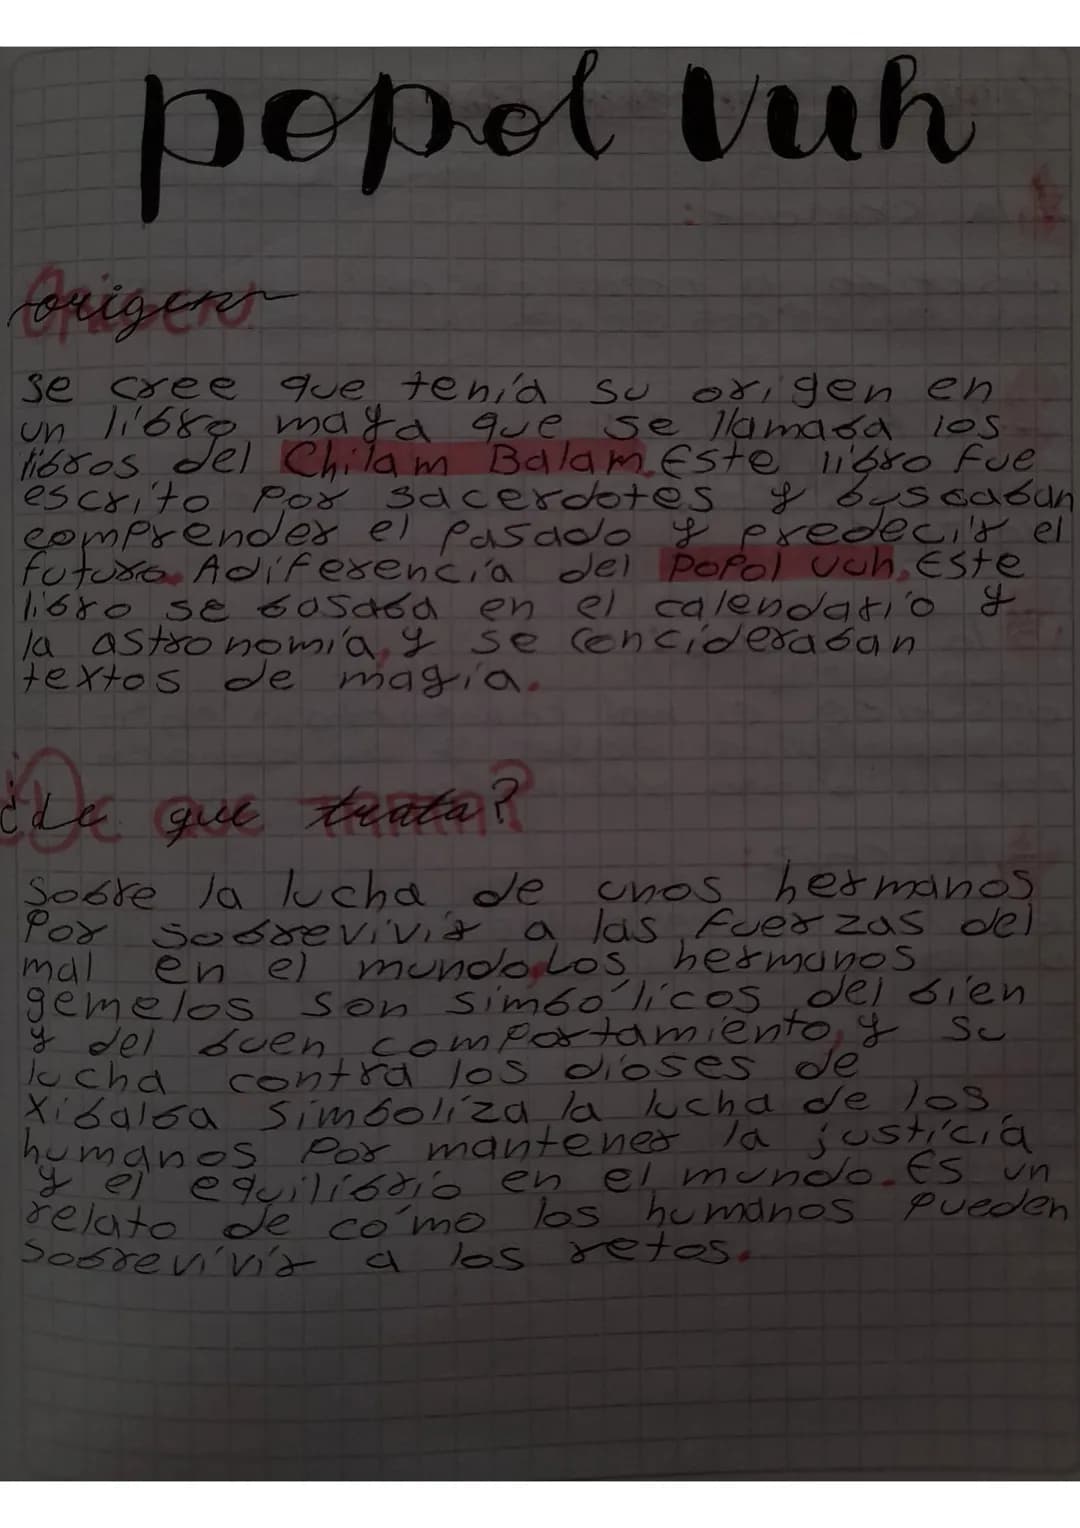 popol vuh
origen
se cree que tenía su origen en
un libro maya que se llamaba los
libros del Chilam Balam. Este libro fue
escrito por sacerdotes y buscaban
comprender el pasado y predecir el
futuro. Adiferencia del Popol vuh, Este
libro se basaba en el calendario y
la astronomía, y se concideraban
textos de magia.
¿de que trata?
Sobre la lucha de unos hermanos
Por sobrevivir a las fuerzas del
mal en el mundo. Los hermanos
gemelos son simbólicos del bien
y del buen comportamiento, y su
lucha contra los dioses de
Xibalba simboliza la lucha de los
humanos Por mantener la justicia
y el equilibrio en el mundo. ES un
relato de cómo los humanos Pueden
Sobrevivir a los retos.